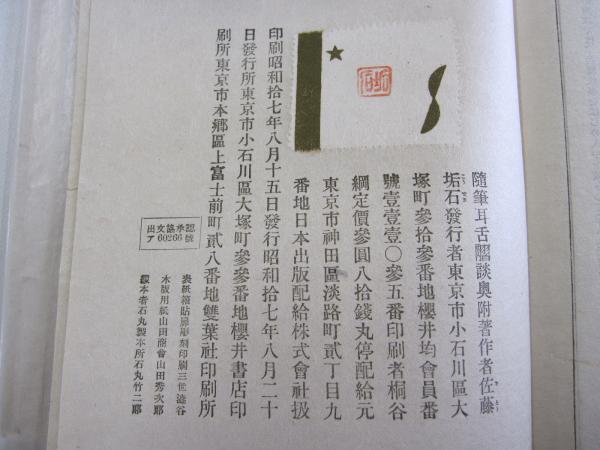 隨筆耳舌談奥附著作者佐藤
垢石發行者東京市小石川區大
塚町參拾參番地櫻井均會員番
號壹壹壹〇參五番印刷者桐谷
綱定價參圓八拾錢丸停配給元
東京市神田區淡路町貳丁目九
番地日本出版配給株式會社扱
印刷昭和拾七年八月十五日發行昭和拾七年八月二十
日發行所東京市小石川區大塚町參參番地櫻井書店印
刷所東京市本鄕區上富士前町貳八番地雙葉社印刷所
出文協承認
ア60266號
表紙箱貼扉彫刻印刷三世澁谷
木版用紙山田商會山田秀次郞
製本者石丸製本所石丸竹二郞
垢石